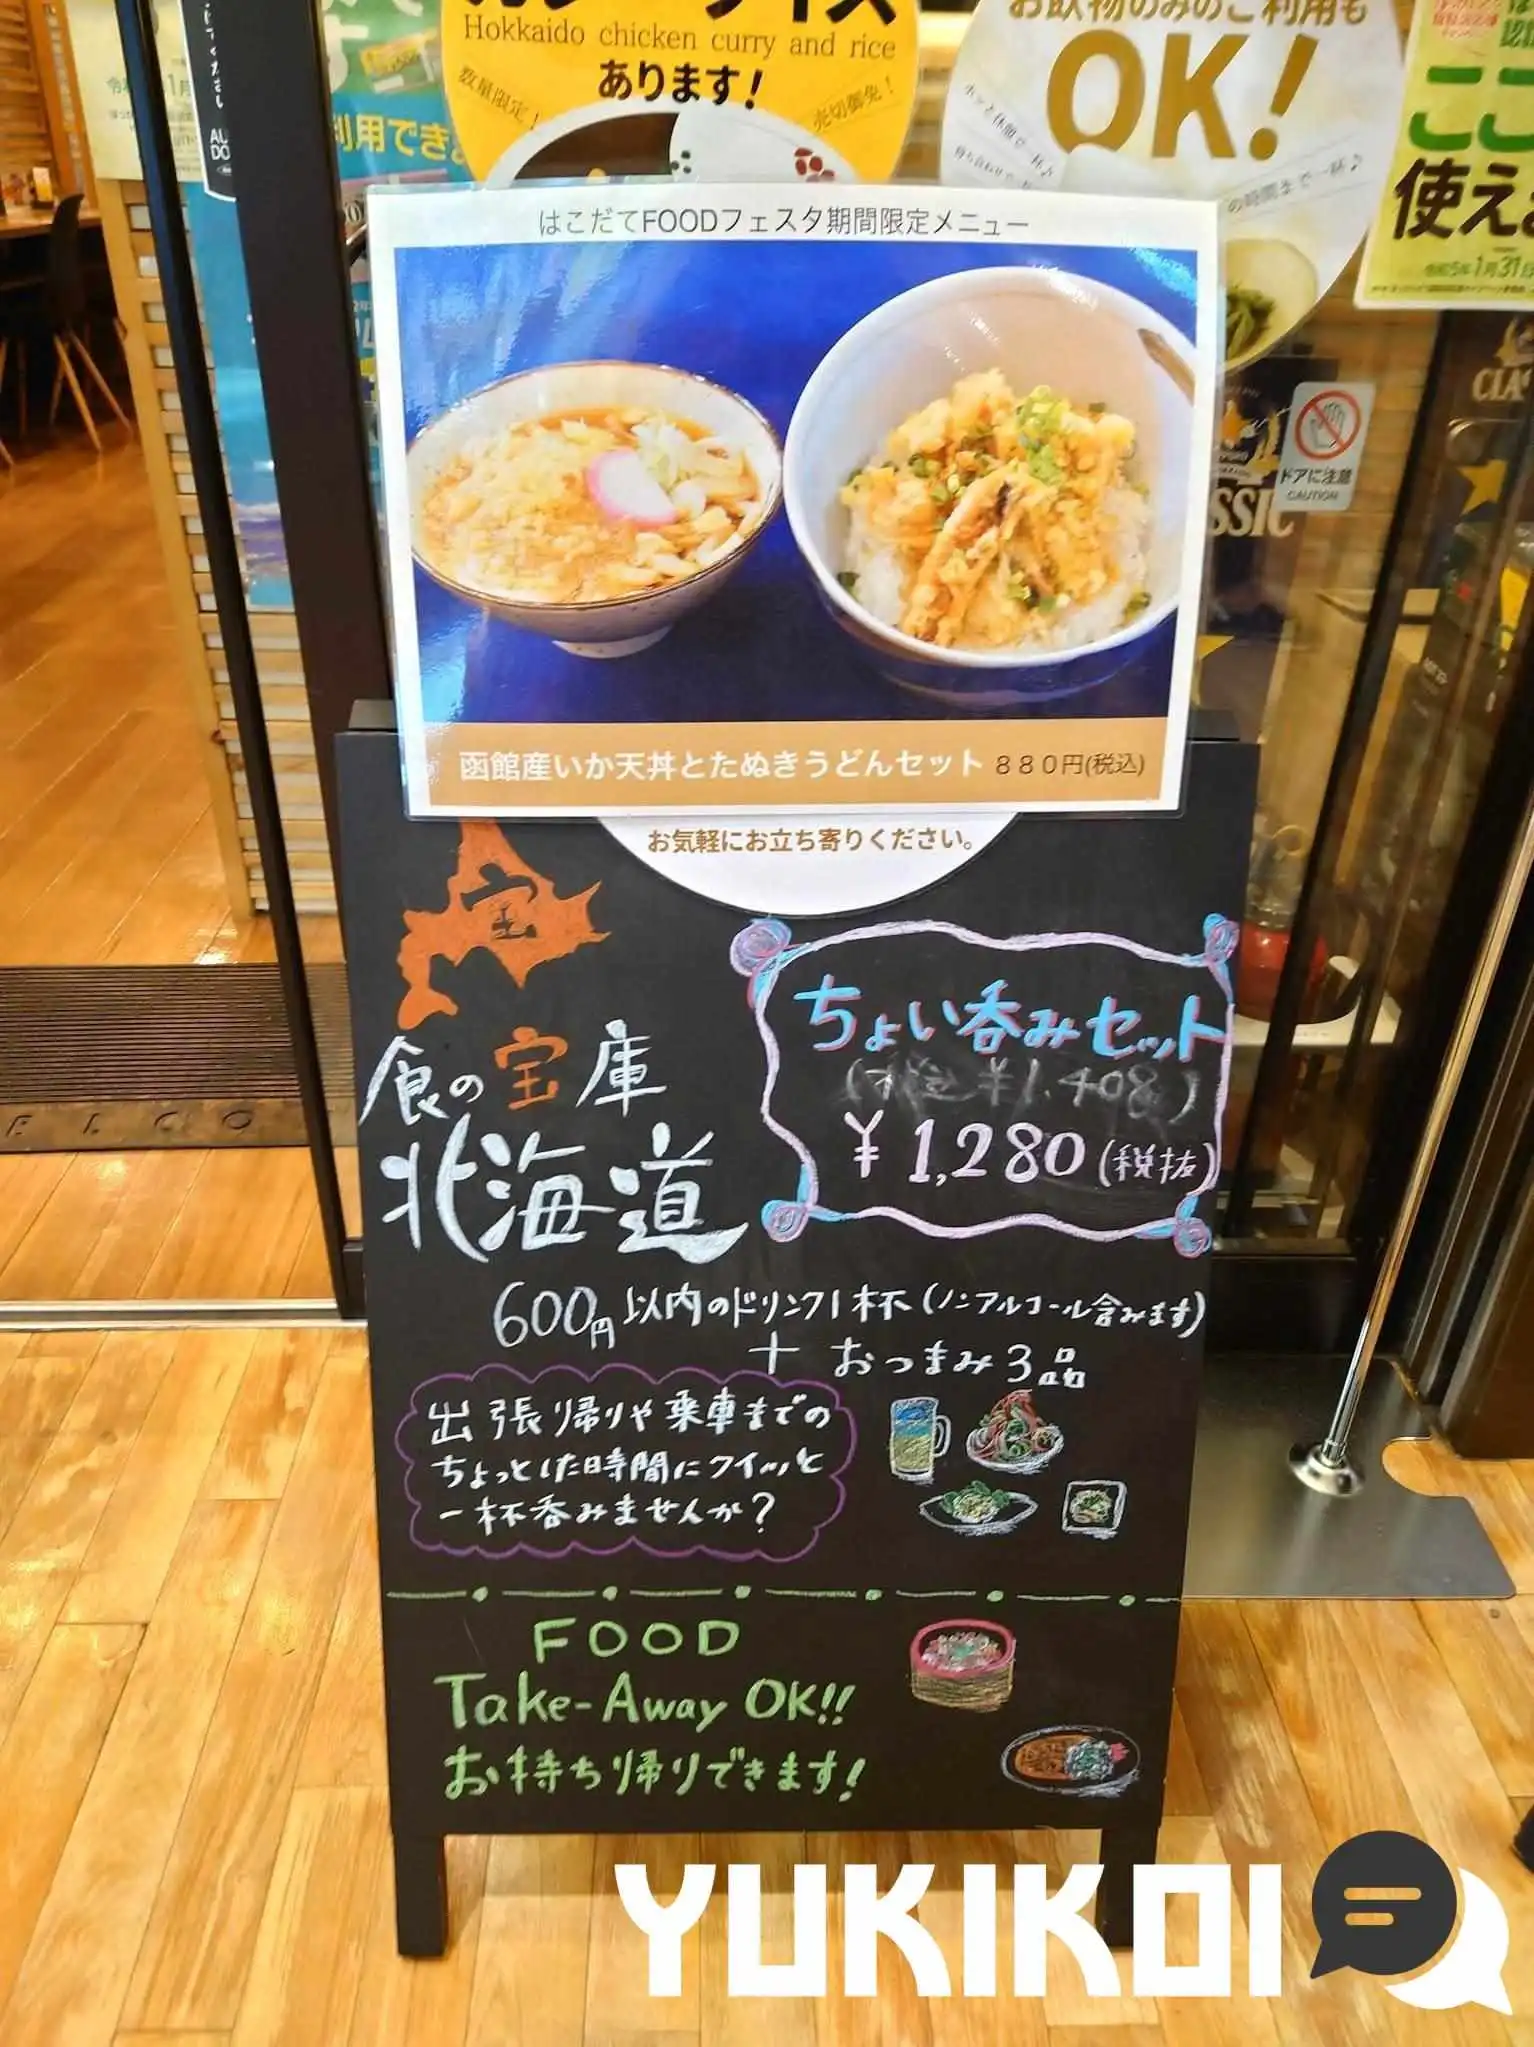 Hokkaido chicken curry and rice
あります!
数量限定!
売切御免!
お飲物のみのご利用も
OK!
利用でき
使え
令和5年1月31日
はこだてFOODフェスタ期間限定メニュー
函館産いか天丼とたぬきうどんセット 880円(税込)
ドアに注意
CAUTION
お気軽にお立ち寄りください。
宝
食の宝庫
北海道
ちょい呑みセット
(税込¥1,408)
¥1,280(税抜)
600円以内のドリンク1杯(ノンアルコール含みます)
+ おつまみ3品
出張帰りや乗車までの
ちょっとした時間にクイッと
一杯呑みませんか?
FOOD
Take-Away OK!!
お持ち帰りできます!
YUKIKOI